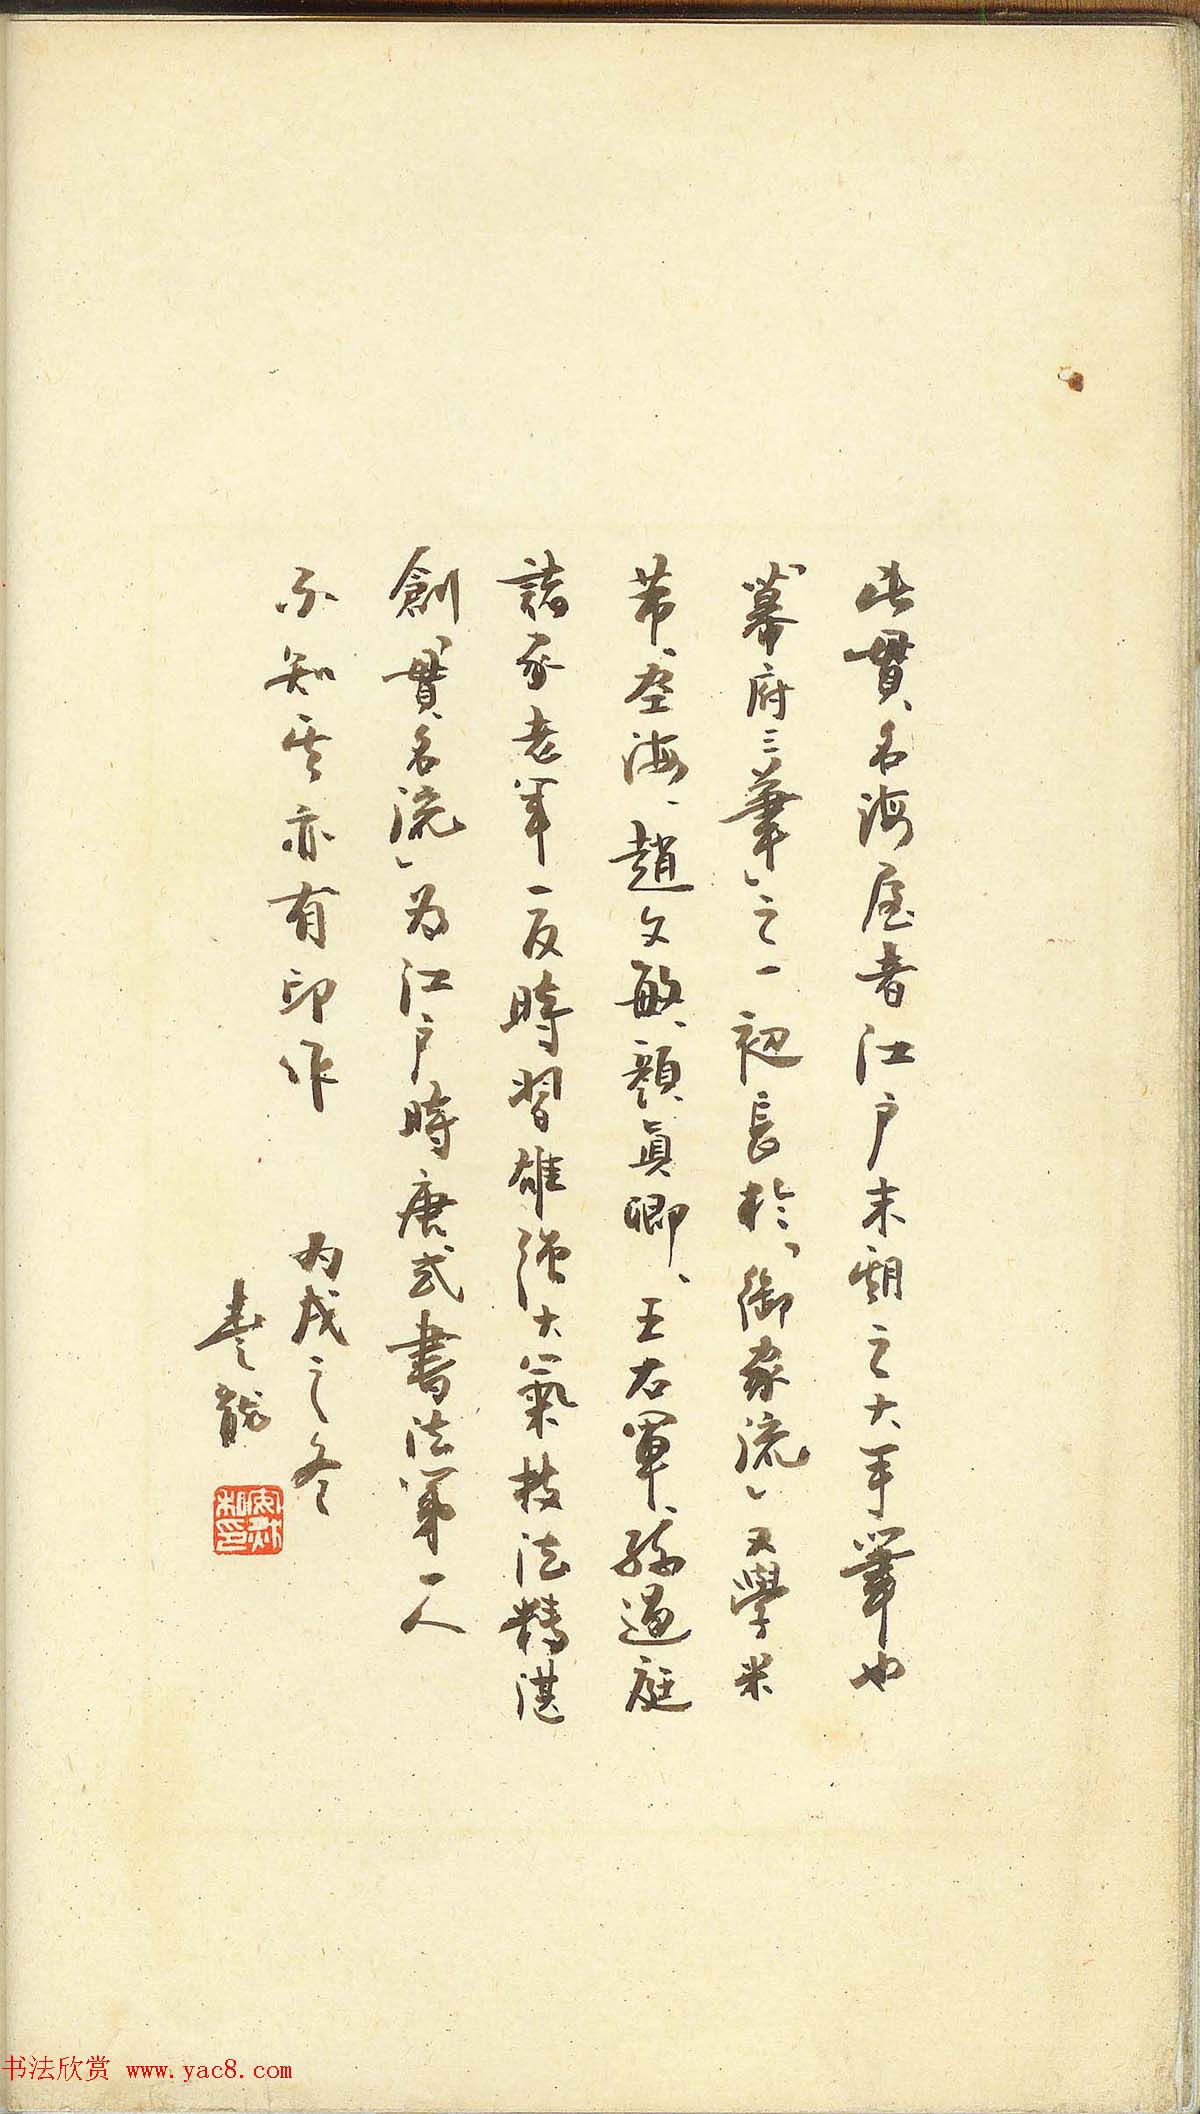 此貫名海屋者江户末期之大手筆也
「幕府三筆」之一初長於「御家流」又學米
芾、空海、趙文敏、顏真卿、王右軍、孫過庭
諸家老年一反時習雄强大氣技法精湛
創「貫名流」为江户時唐式書法第一人
不知其亦有印作
丙戌之冬
龍
书法欣赏 www.yac8.com